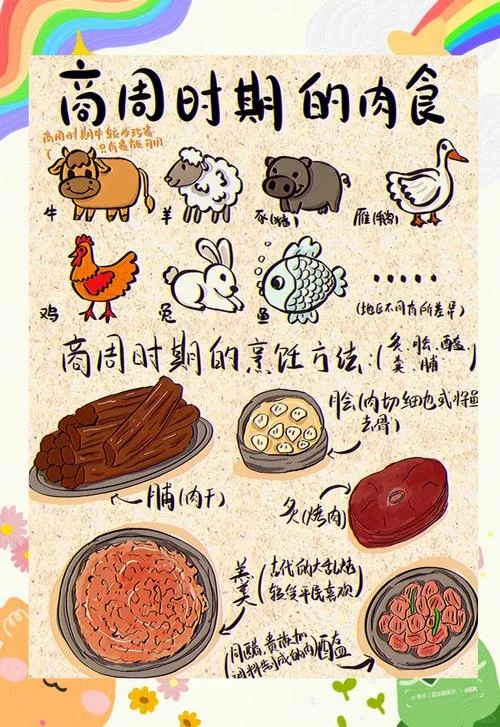 商周时期的肉食
商周时期牛较为珍贵
(只有贵族可用
牛
羊
豕(猪)
雁(鹅)
鸡
兔
鱼
.....
(地区不同有所差异)
商周时期的烹饪方法:(炙、脍、醢、
羹、脯)
脍(肉切细也或将鱼
去骨)
脯(肉干)
炙(烤肉)
羹(古代的大乱炖
较受平民喜欢)
(用醋、贵族
调料制成的肉)醢
小红书